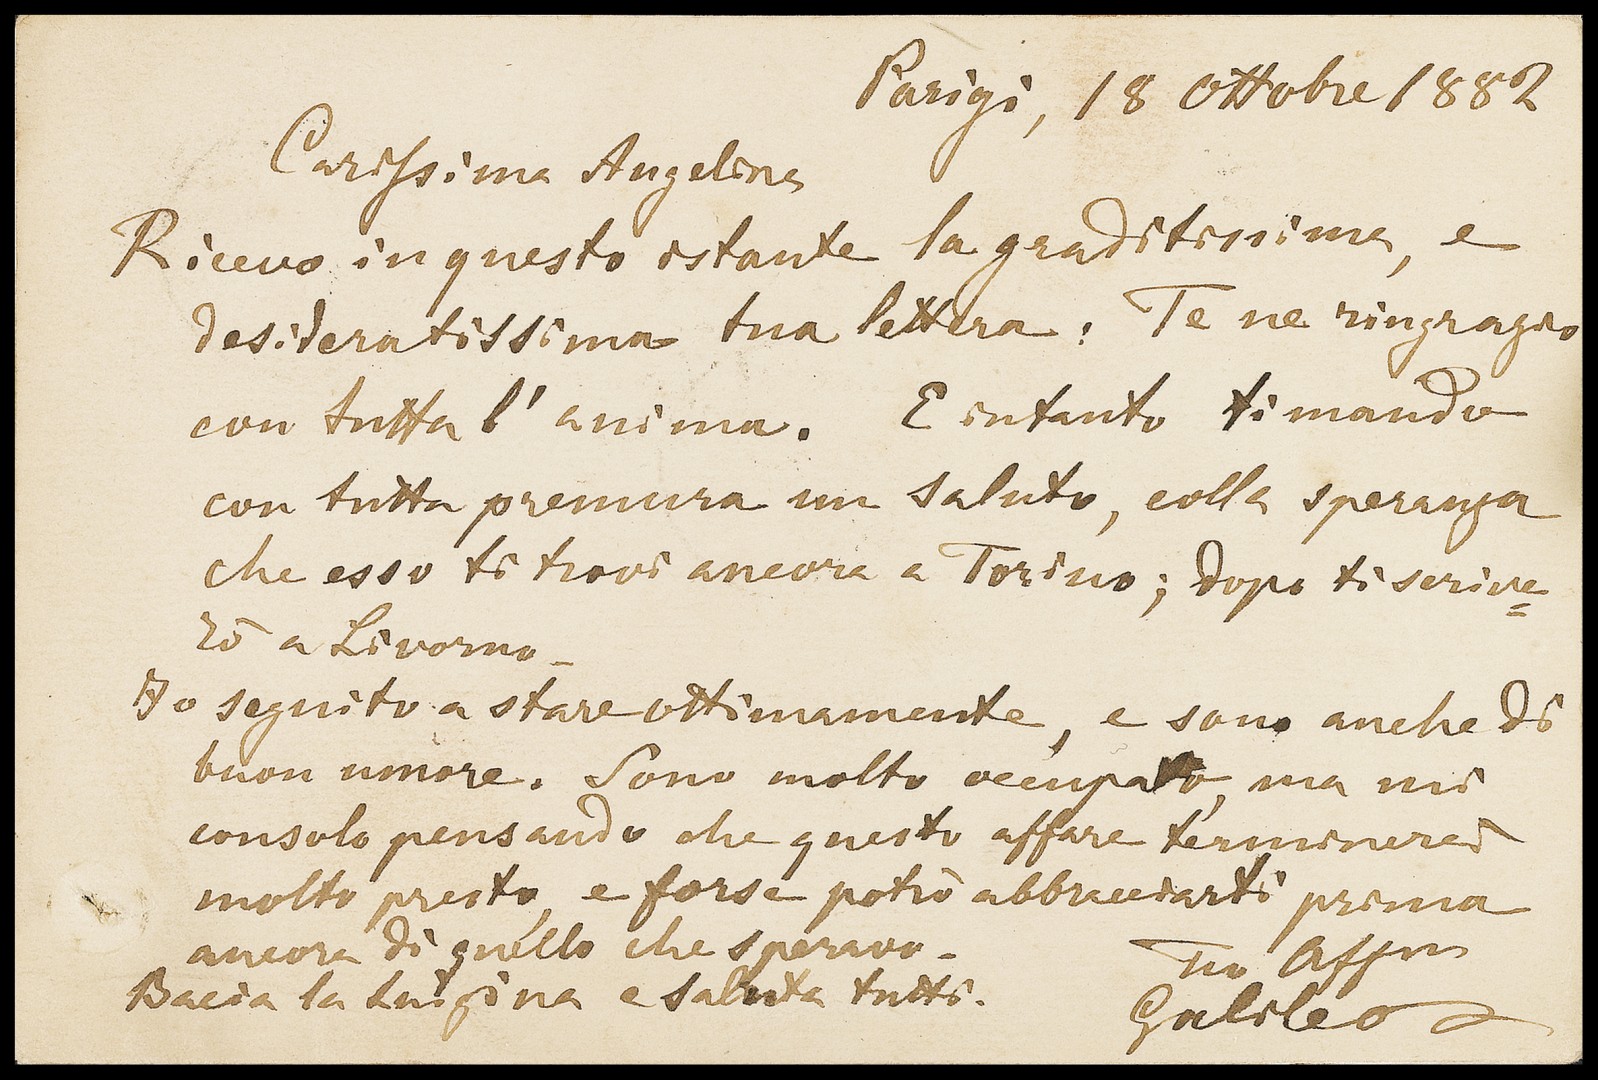 Parigi, 18 Ottobre 1882
Carissima Angelina
Ricevo in questo istante la graditissima, e
desideratissima tua lettera: Te ne ringrazio
con tutta l'anima. E intanto ti mando
con tutta premura un saluto, colla speranza
che esso ti trovi ancora a Torino; dopo ti scrive=
rò a Livorno_
Io seguito a stare ottimamente, e sono anche di
buon umore. Sono molto occupato, ma mi
consolo pensando che questo affare terminerà
molto presto, e forse potrò abbracciarti prima
ancora di quello che speravo_
Bacia la Luigina e saluta tutti.
Tuo Affmo
Galileo